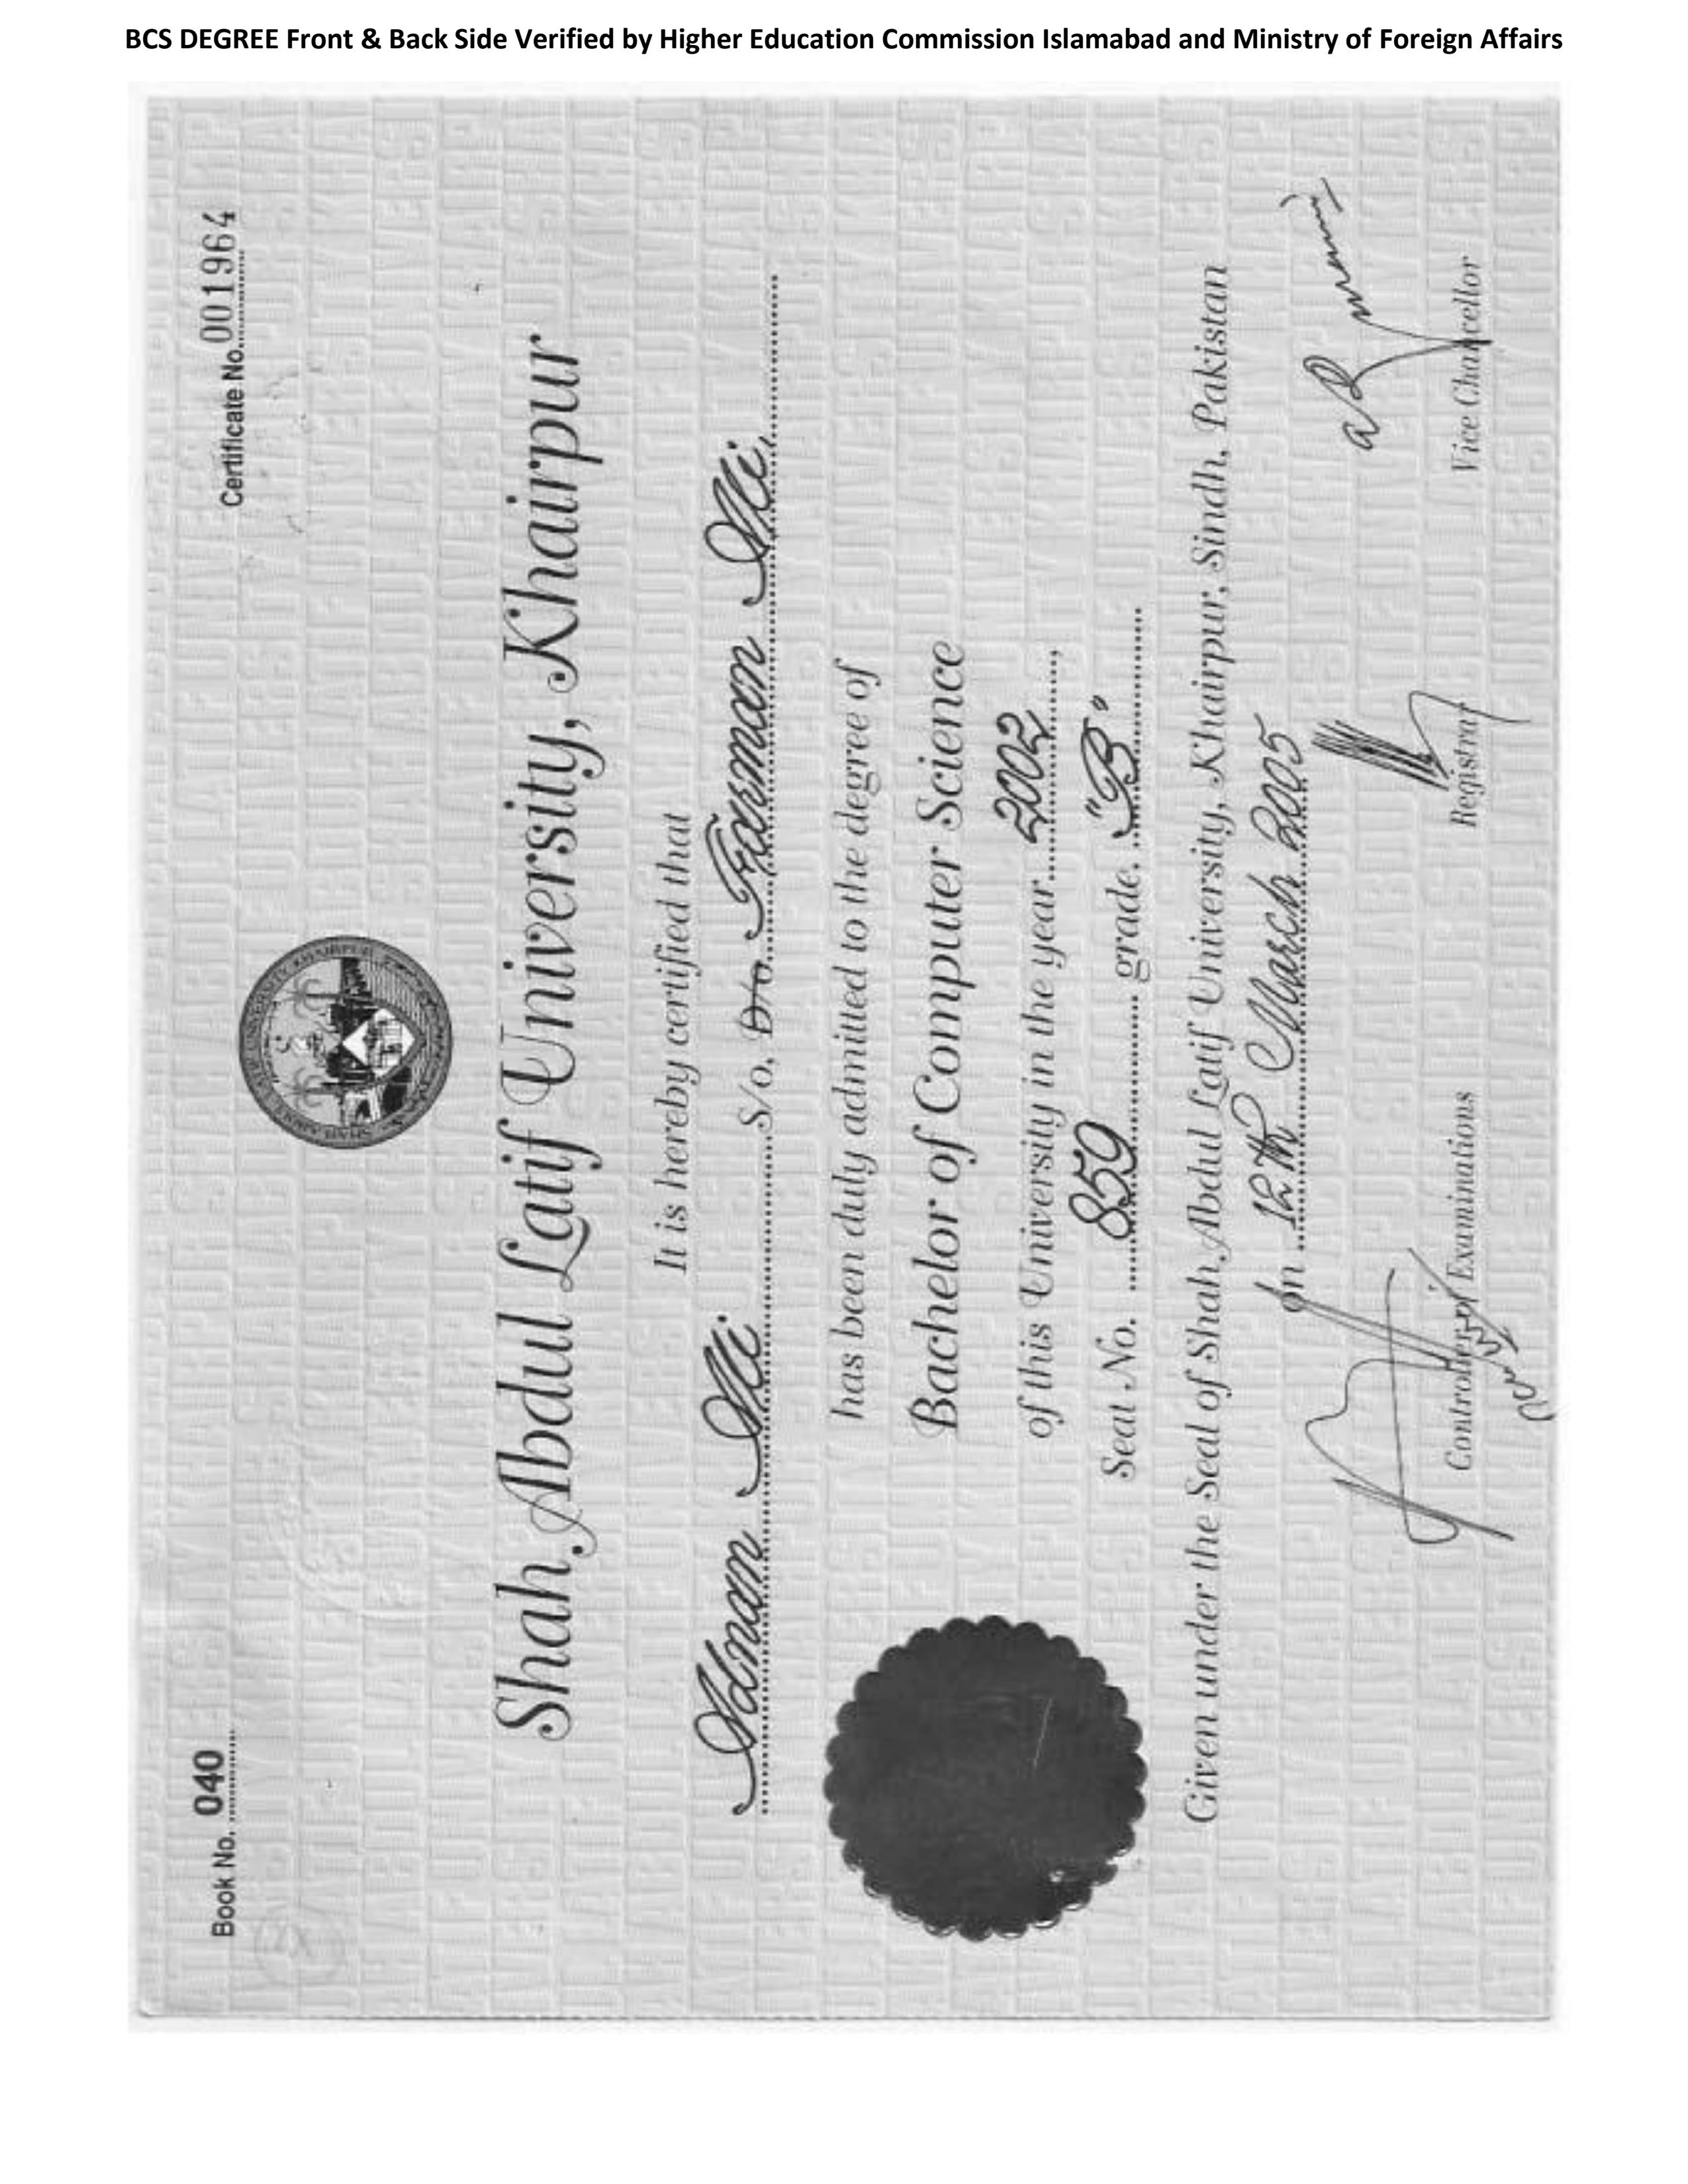 BCS DEGREE Front & Back Side Verified by Higher Education Commission Islamabad and Ministry of Foreign Affairs
Book No. 040
Certificate No. 001964
Shah Abdul Latif University, Khairpur
It is hereby certified that
Adnan Ali S/o, D/o Farman Ali
has been duly admitted to the degree of
Bachelor of Computer Science
of this University in the year 2002,
Seat No. 859 grade. "B"
Given under the Seal of Shah Abdul Latif University, Khairpur, Sindh, Pakistan
on 12th March 2005
Controller of Examinations
Registrar
Vice Chancellor